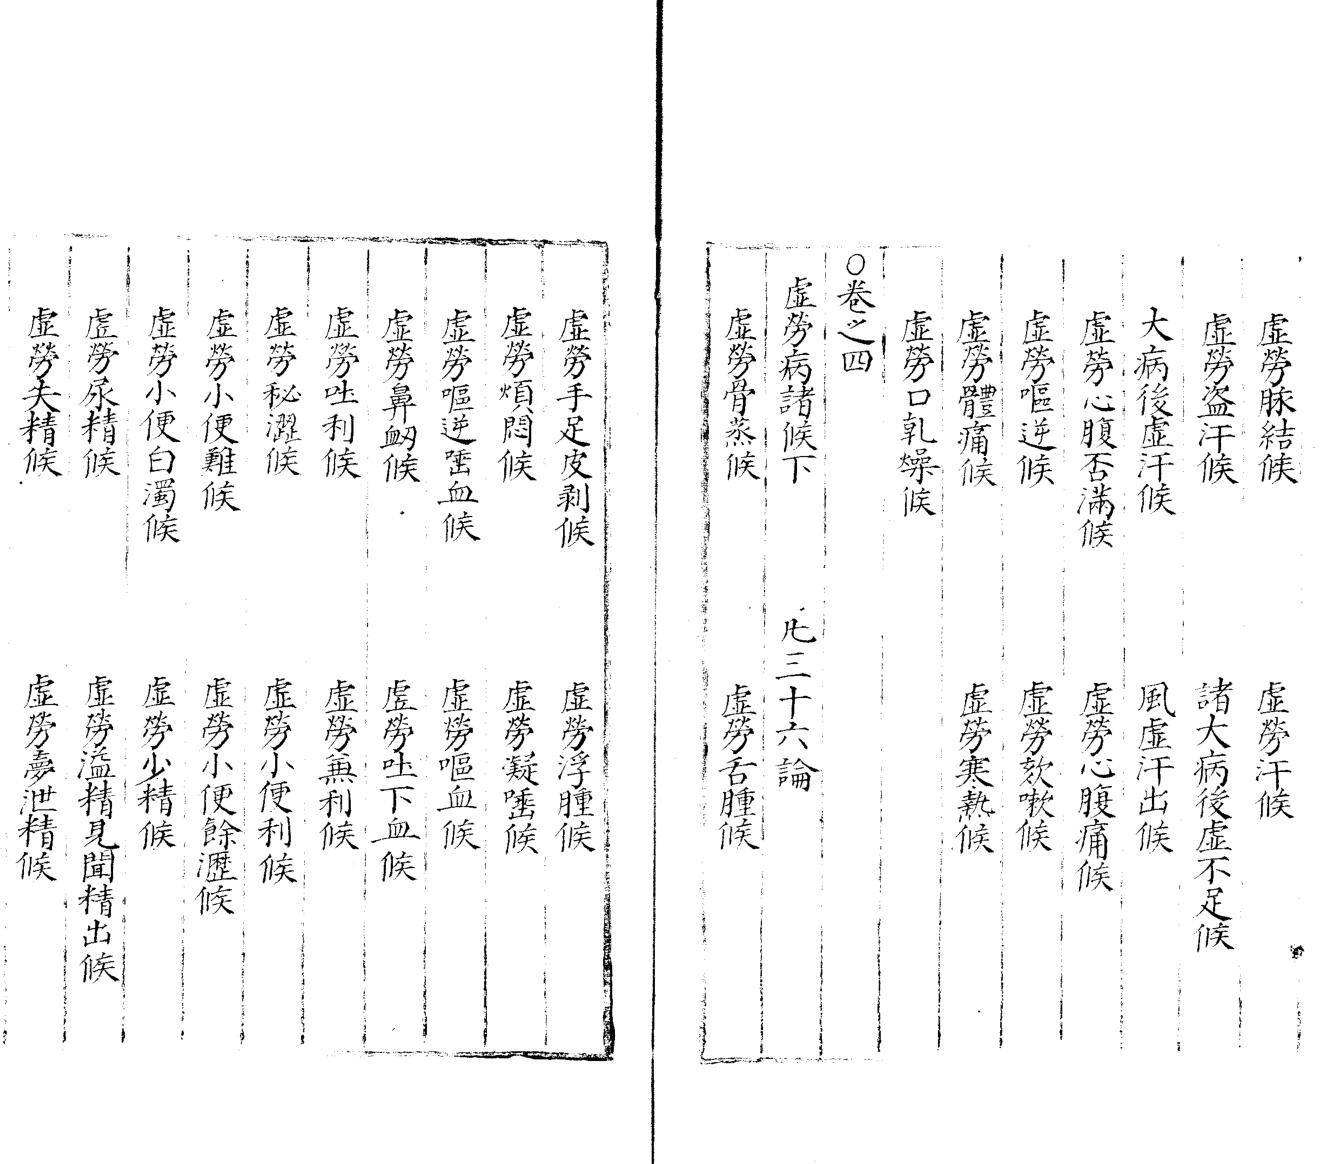 虚勞脉結候　虚勞汗候
虚勞盗汗候　諸大病後虚不足候
大病後虚汗候　風虚汗出候
虚勞心腹否滿候　虚勞心腹痛候
虚勞嘔逆候　虚勞欬嗽候
虚勞體痛候　虚勞寒熱候
虚勞口乾燥候
○卷之四
虚勞病諸候下　凡三十六論
虚勞骨蒸候　虚勞舌腫候
虚勞手足皮剥候　虚勞浮腫候
虚勞煩悶候　虚勞凝唾候
虚勞嘔逆唾血候　虚勞嘔血候
虚勞鼻衂候　虚勞吐下血候
虚勞吐利候　虚勞兼利候
虚勞秘澀候　虚勞小便利候
虚勞小便難候　虚勞小便餘瀝候
虚勞小便白濁候　虚勞少精候
虚勞尿精候　虚勞溢精見聞精出候
虚勞失精候　虚勞夢泄精候